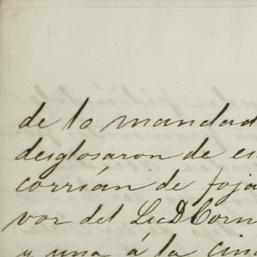 de lo mandad
desglosaron de es
corrián de foja
vor del Lic D Corn
y una á la cin